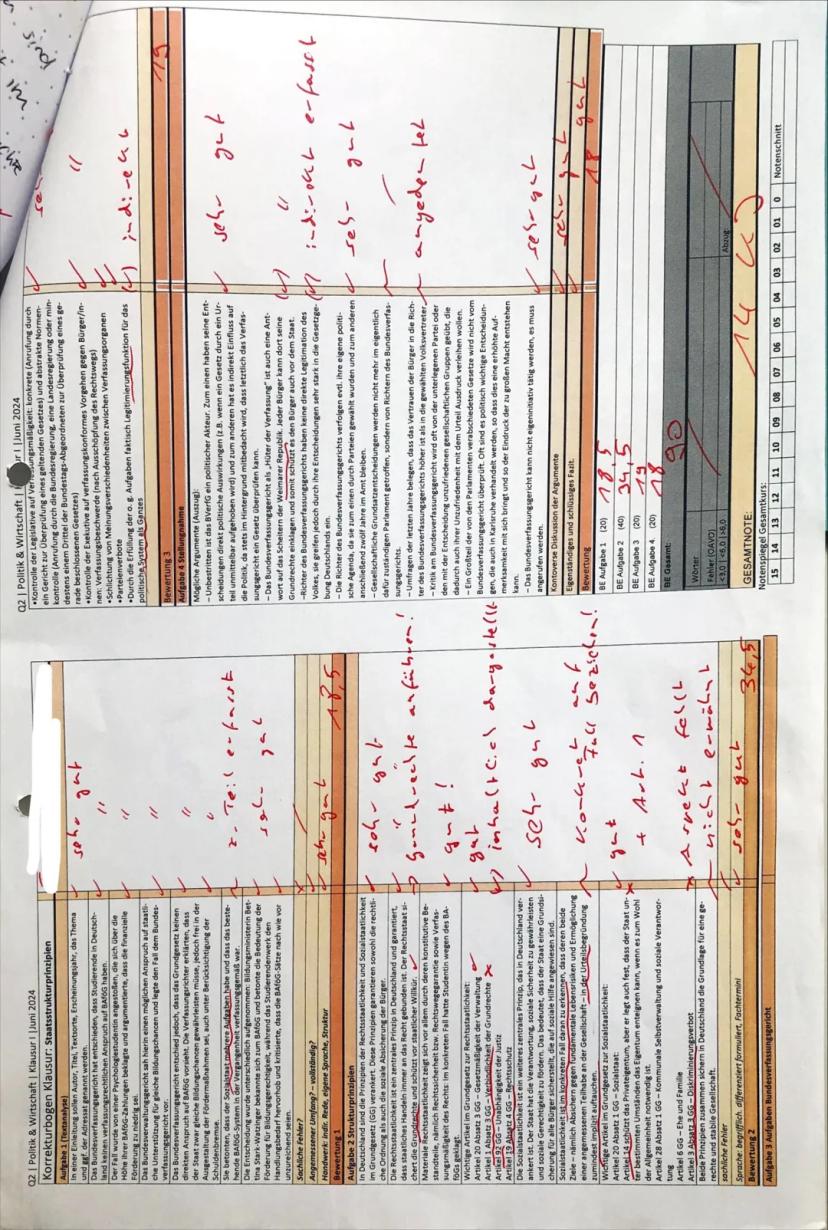 Q2 | Politik & Wirtschaft | Klausur I | Juni 2024
Korrekturbogen Klausur: Staatsstrukturprinzipien
Aufgabe 1 (Textanalyse)
In einer Einleitung sollen Autor, Titel, Textsorte, Erscheinungsjahr, das Thema
und ggf. der Adressat genannt werden.
sehr gut
Das Bundesverfassungsgericht hat entschieden, dass Studierende in Deutsch-
land keinen verfassungsrechtlichen Anspruch auf BAföG haben.
"
Der Fall wurde von einer Psychologiestudentin angestoßen, die sich über die
Höhe ihrer BAföG-Zahlungen beklagte und argumentierte, dass die finanzielle
Förderung zu niedrig sei.
"
Das Bundesverwaltungsgericht sah hierin einen möglichen Anspruch auf staatli-
che Unterstützung für gleiche Bildungschancen und legte den Fall dem Bundes-
verfassungsgericht vor.
"
Das Bundesverfassungsgericht entschied jedoch, dass das Grundgesetz keinen
direkten Anspruch auf BAföG vorsieht. Die Verfassungsrichter erklärten, dass
der Staat zwar gleiche Bildungschancen gewährleisten müsse, jedoch frei in der
Ausgestaltung der Fördermaßnahmen sei, auch unter Berücksichtigung der
Schuldenbremse.
"
"
Sie betonten, dass der Sozialstaat mehrere Aufgaben habe und dass das beste-
hende BAföG-System in der Vergangenheit verfassungsgemäß war.
z. Teil erfasst
Die Entscheidung wurde unterschiedlich aufgenommen: Bildungsministerin Bet-
tina Stark-Watzinger bekannte sich zum BAföG und betonte die Bedeutung der
Förderung für Bildungsgerechtigkeit, während das Studierendenwerk den
Handlungsbedarf hervorhob und kritisierte, dass die BAföG-Sätze nach wie vor
unzureichend seien.
sehr gut
Sachliche Fehler?
Angemessener Umfang? – vollständig?
Handwerk: indir. Rede, eigene Sprache, Struktur
sehr gut
Bewertung 1
18,5
Aufgabe 2 Strukturprinzipien
In Deutschland sind die Prinzipien der Rechtsstaatlichkeit und Sozialstaatlichkeit
im Grundgesetz (GG) verankert. Diese Prinzipien garantieren sowohl die rechtli-
che Ordnung als auch die soziale Absicherung der Bürger.
sehr gut
Die Rechtsstaatlichkeit ist ein zentrales Prinzip in Deutschland und garantiert,
dass staatliches Handeln immer an das Recht gebunden ist. Der Rechtsstaat si-
chert die Grundrechte und schützt vor staatlicher Willkür.
"
Grundrechte anführen!
Materielle Rechtsstaatlichkeit zeigt sich vor allem durch deren konstitutive Be-
standteile, nämlich Rechtsschutz- bzw. Rechtswegegarantie sowie Verfas-
sungsmäßigkeit des Rechts: Im konkreten Fall hatte Studentin wegen des BA-
föGs geklagt.
gut!
Wichtige Artikel im Grundgesetz zur Rechtsstaatlichkeit:
Artikel 20 Absatz 3 GG – Gesetzmäßigkeit der Verwaltung
Artikel 1 Absatz 3 GG – Verbindlichkeit der Grundrechte
Artikel 92 GG – Unabhängigkeit der Justiz
Artikel 19 Absatz 4 GG – Rechtsschutz
gut
inhaltlich dargestellt
Die Sozialstaatlichkeit ist ein weiteres zentrales Prinzip, das in Deutschland ver-
ankert ist. Der Staat hat die Verantwortung, soziale Sicherheit zu gewährleisten
und soziale Gerechtigkeit zu fördern. Das bedeutet, dass der Staat eine Grundsi-
cherung für alle Bürger sicherstellt, die auf soziale Hilfe angewiesen sind.
sehr gut
Sozialstaatlichkeit ist im konkreten Fall daran zu erkennen, dass deren beide
Ziele – nämlich Absichern gegen fundamentale Lebensrisiken und Ermöglichung
einer angemessenen Teilhabe an der Gesellschaft – in der Urteilsbegründung
zumindest implizit auftauchen.
Konkret auf
Fall beziehen!
Wichtige Artikel im Grundgesetz zur Sozialstaatlichkeit:
Artikel 20 Absatz 1 GG – Sozialstaat
gut
Artikel 14 schützt das Privateigentum, aber er legt auch fest, dass der Staat un-
ter bestimmten Umständen das Eigentum enteignen kann, wenn es zum Wohl
der Allgemeinheit notwendig ist.
+ Art. 1
Artikel 28 Absatz 1 GG – Kommunale Selbstverwaltung und soziale Verantwor-
tung
Artikel 6 GG – Ehe und Familie
Artikel 3 Absatz 3 GG – Diskriminierungsverbot
Aspekt fehlt
Beide Prinzipien zusammen sichern in Deutschland die Grundlage für eine ge-
rechte und stabile Gesellschaft.
nicht erwähnt
sachliche Fehler
Sprache: begrifflich, differenziert formuliert, Fachtermini
sehr gut
Bewertung 2
34,5
Aufgabe 3 Aufgaben Bundesverfassungsgericht
Q2 | Politik & Wirtschaft | Klausur I | Juni 2024
• Kontrolle der Legislative auf Verfassungsmäßigkeit: konkrete (Anrufung durch
ein Gericht zur Überprüfung eines geltenden Gesetzes) und abstrakte Normen-
kontrolle (Anrufung durch die Bundesregierung, eine Landesregierung oder min-
destens einem Drittel der Bundestags-Abgeordneten zur Überprüfung eines ge-
rade beschlossenen Gesetzes)
• Kontrolle der Exekutive auf verfassungskonformes Vorgehen gegen Bürger/in-
nen: Verfassungsbeschwerde (nach Ausschöpfung des Rechtswegs)
"
• Schlichtung von Meinungsverschiedenheiten zwischen Verfassungsorganen
• Parteienverbote
• Durch die Erfüllung der o. g. Aufgaben faktisch Legitimierungsfunktion für das
politische System als Ganzes
indirekt
Bewertung 3
19
Aufgabe 4 Stellungnahme
Mögliche Argumente (Auszug):
– Unbestritten ist das BVerfG ein politischer Akteur. Zum einen haben seine Ent-
scheidungen direkt politische Auswirkungen (z.B. wenn ein Gesetz durch ein Ur-
teil unmittelbar aufgehoben wird) und zum anderen hat es indirekt Einfluss auf
die Politik, da stets im Hintergrund mitbedacht wird, dass letztlich das Verfas-
sungsgericht ein Gesetz überprüfen kann.
sehr gut
– Das Bundesverfassungsgericht als „Hüter der Verfassung" ist auch eine Ant-
wort auf das Scheitern der Weimarer Republik. Jeder Bürger kann dort seine
Grundrechte einklagen und somit schützt es den Bürger auch vor dem Staat.
"
–Richter des Bundesverfassungsgerichts haben keine direkte Legitimation des
Volkes, sie greifen jedoch durch ihre Entscheidungen sehr stark in die Gesetzge-
bung Deutschlands ein.
indirekt erfasst
– Die Richter des Bundesverfassungsgerichts verfolgen evtl. ihre eigene politi-
sche Agenda, da sie zum einen durch Parteien gewählt wurden und zum anderen
anschließend zwölf Jahre im Amt bleiben.
sehr gut
– Gesellschaftliche Grundsatzentscheidungen werden nicht mehr im eigentlich
dafür zuständigen Parlament getroffen, sondern von Richtern des Bundesverfas-
sungsgerichts.
– Umfragen der letzten Jahre belegen, dass das Vertrauen der Bürger in die Rich-
ter des Bundesverfassungsgerichts höher ist als in die gewählten Volksvertreter.
angedeutet
– Kritik am Bundesverfassungsgericht wird oft von der unterlegenen Partei oder
den mit der Entscheidung unzufriedenen gesellschaftlichen Gruppen geübt, die
dadurch auch ihrer Unzufriedenheit mit dem Urteil Ausdruck verleihen wollen.
– Ein Großteil der von den Parlamenten verabschiedeten Gesetze wird nicht vom
Bundesverfassungsgericht überprüft. Oft sind es politisch wichtige Entscheidun-
gen, die auch in Karlsruhe verhandelt werden, so dass dies eine erhöhte Auf-
merksamkeit mit sich bringt und so der Eindruck der zu großen Macht entstehen
kann.
– Das Bundesverfassungsgericht kann nicht eigeninitiativ tätig werden, es muss
angerufen werden.
sehr gut
Kontroverse Diskussion der Argumente
sehr gut
Eigenständiges und schlüssiges Fazit.
gut
Bewertung
18
BE Aufgabe 1 (20) 18,5
BE Aufgabe 2 (40) 34,5
BE Aufgabe 3 (20) 19
BE Aufgabe 4. (20) 18
BE Gesamt: 90
Wörter
Fehler (OAVO)
<3,0 | <6,0 | >6,0
Abzug:
GESAMTNOTE: 14
Notenspiegel Gesamtkurs:
15 14 13 12 11 10 09 08 07 06 05 04 03 02 01 0 Notenschnitt